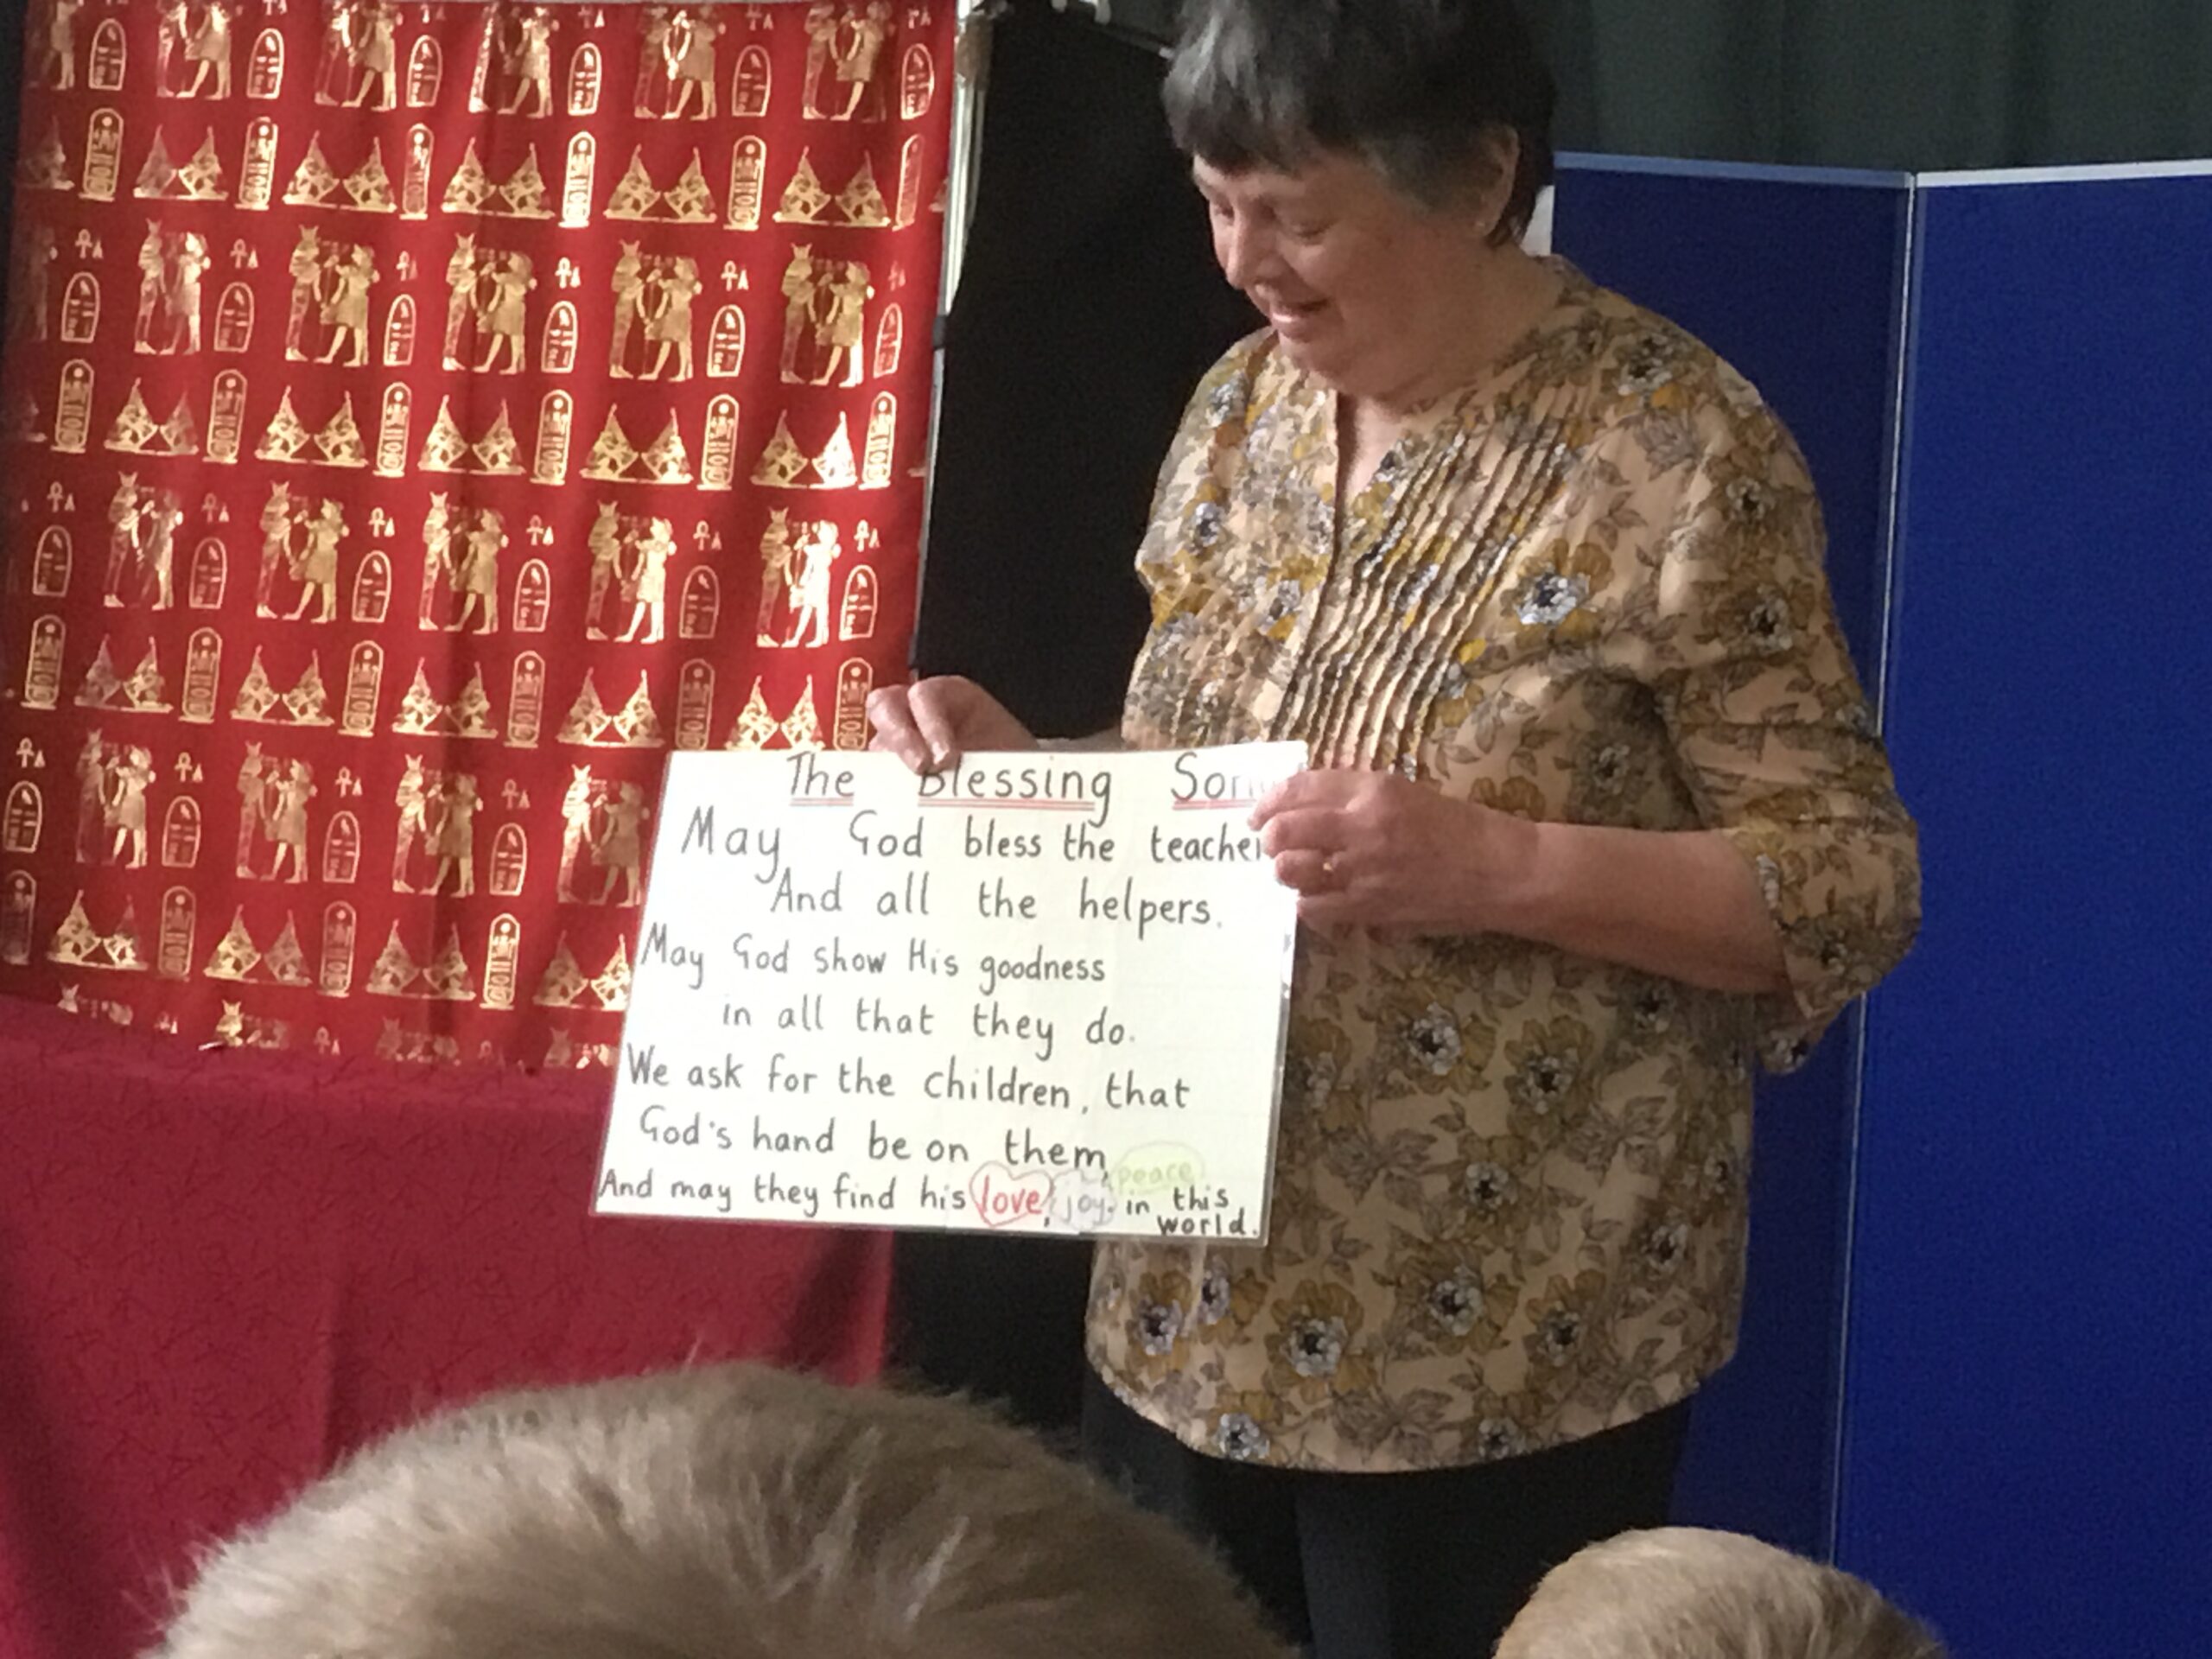 The Blessing Son
May God bless the teacher
And all the helpers.
May God show His goodness
in all that they do.
We ask for the children, that
God's hand be on them,
And may they find his love, joy, peace in this
world.